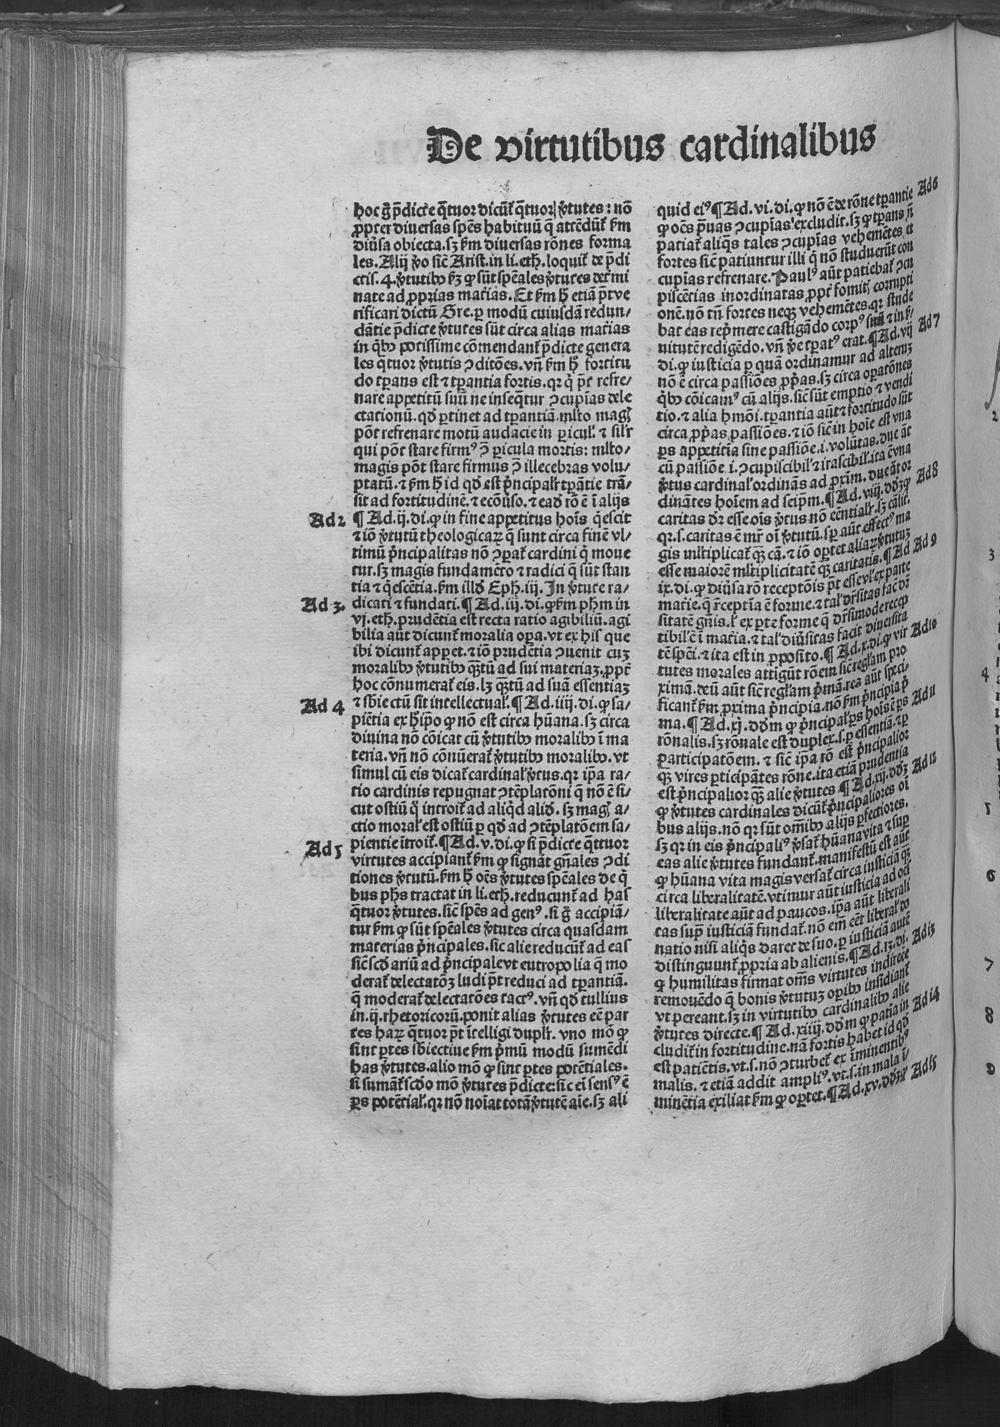 De virtutibus cardinalibus
hoc g̃ p̃dicte q̃tuor dicũt̃ q̃tuor ṽtutes: nõ
ꝓpter diversas sp̃es habituũ q̃ attẽdũt̃ ẜm
diũsa obiecta. sꝫ ẜm diversas rõnes forma
les. Alij ṽo sic̃ Arist. in li. eth. loquit̃ de p̃di
ctis. 4. ṽtutibꝰ ẜꝫ ꝙ sũt sp̃eales ṽtutes det̃mi
nate ad ꝓprias mat̃ias. Et ẜm h̃ etiã p̃t ve
rificari dictũ Gre. ꝑ modũ cuiusdã redun/
dãtie p̃dicte ṽtutes sũt circa alias mat̃ias
in q̃bꝰ potissime cõmendant̃ p̃dicte genera
les q̃tuor ṽtutis ꝯditões. vñ ẜm h̃ fortitu
do tꝑans est ⁊ tꝑantia fortis. qꝛ q̃ p̃t refre/
nare appetitũ suũ ne inseq̃tur ꝯcupias dele
ctationũ. qd̃ ꝑtinet ad tꝑantiã. ml̃to mag̃
põt refrenare motũ audacie in ꝑicul̃. ⁊ sil̃r
qui põt stare firmꝰ ꝯ̃ ꝑicula mortis: ml̃to/
magis põt stare firmus ꝯ̃ illecebras volu/
ptatũ. ⁊ ẜm h̃ id qd̃ est p̃ncipalr̃ tꝑantie trã/
sit ad fortitudinẽ. ⁊ ecõũso. ⁊ eadẽ rõ ẽ ĩ alijs
Ad 2 ¶ Ad. ij. di. ꝙ in fine appetitus hoĩs q̃escit
⁊ iõ ṽtutũ theologicaꝝ q̃ sunt circa finẽ vl/
timũ p̃ncipalitas nõ ꝯꝑat̃ cardini q̃ moue
tur. sꝫ magis fundamẽto ⁊ radici q̃ sũt stan
tia ⁊ q̃escẽtia. ẜm illd̃ Eph. iij. In ṽtute ra/
Ad 3. dicati ⁊ fundati. ¶ Ad. iij. di. ꝙ ẜm ph̃m in
vj. eth. prudẽtia est recta ratio agibiliũ. agi
bilia aũt dicunt̃ moralia oꝑa. vt ex his̃ que
ibi dicunt̃ appet. ⁊ iõ prudẽtia ꝯuenit cuꝫ
moralibꝰ ṽtutibꝰ q̃ꝫtũ ad sui materiaꝫ. ꝓpt̃
hoc cõnumerat̃ eis. lꝫ q̃ꝫtũ ad suã essentiaꝫ
Ad 4 ⁊ sb̃iectũ sit intellectual̃. ¶ Ad. iiij. di. ꝙ sa/
piẽtia ex h̃ ip̃o ꝙ nõ est circa hũana. sꝫ circa
diuina nõ cõicat cũ ṽtutibꝰ moralibꝰ ĩ ma
teria. vñ nõ cõnũerat̃ ṽtutibꝰ moralibꝰ. vt
simul cũ eis dicat̃ cardinal̃ ṽtus. qꝛ ip̃a ra/
tio cardinis repugnat ꝯtẽplatõni q̃ nõ ẽ si/
cut ostiũ q̃ introit̃ ad aliq̃d aliđ. sꝫ mag̃ a/
ctio moral̃ est ostiũ ꝑ qđ ad ꝯtẽplatõem sa/
Ad 5 pientie ĩtroit̃. ¶ Ad. v. di. ꝙ si p̃dicte q̃ttuor
virtutes accipiant̃ ẜm ꝙ signãt gñales ꝯdi
tiones ṽtutũ. ẜm h̃ oẽs ṽtutes sp̃eales de q̃
bus ph̃s tractat in li. eth. reducunt̃ ad has̃
q̃tuor ṽtutes. sic̃ sp̃es ad genꝰ. si g̃ accipiã/
tur ẜm ꝙ sũt sp̃eales ṽtutes circa quasdam
materias p̃ncipales. sic alie reducũt̃ ad eas
sic̃ sc̃đariũ ad p̃ncipale vt eutropolia q̃ mo
derat̃ delectatõꝫ ludi p̃t reduci ad tꝑantiã.
q̃ moderat̃ delectatões tactꝰ. vñ qđ tullius
in. ij. rhetoricorũ. ponit alias ṽtutes eẽ par
tes haꝝ q̃tuor p̃t ĩtelligi duplr̃. vno mõ ꝙ
sint ꝑtes sb̃iectiue ẜm p̃mũ modũ sumẽdi
has ṽtutes. alio mõ ꝙ sint ꝑtes potẽtiales.
si sumãt̃ sc̃đo mõ ṽtutes p̃dicte: sic̃ ei sensꝰ ẽ
ꝑs potẽtial̃. qꝛ nõ noĩat totã ṽtutẽ aĩe. sꝫ ali
quid eiꝰ ¶ Ad. vi. di. ꝙ nõ ẽ de rõne tꝑantie Ad 6
ꝙ oẽs p̃uas ꝯcupĩas excludit. sꝫ ꝙ tꝑans ñ
patiat̃ aliq̃s tales ꝯcupĩas vehemẽtes. et
fortes sic̃ patiuntur illi q̃ nõ studuerũt con
cupias refrenare. Paulꝰ aũt patiebat̃ ꝯcu
piscẽtias inordinatas ꝓpt̃ fomit̃ corrupti
onẽ. nõ tñ fortes neqꝫ vehemẽtes. qꝛ stude
bat eas rep̃mere castigãdo corpꝰ suũ ⁊ in ẜ/
uitutẽ redigẽdo. vñ ṽe tꝑatꝰ erat. ¶ Ad. vij Ad 7
di. ꝙ iusticia ꝑ quã ordinamur ad alteruꝫ
nõ ẽ circa passiões ꝓp̃as. sꝫ circa oꝑatõnes
q̃bꝰ cõicamꝰ cũ alijs. sic̃ sũt emptio ⁊ vendi
tio. ⁊ alia hmõi. tꝑantia aũt ⁊ fortitudo sũt
circa ꝓp̃as passiões. ⁊ iõ sic̃ in hoĩe est vna
ꝑs appetitĩa sine passiõe. i. volũtas. due aũt
cũ passiõe. i. ꝯcupiscibil̃ ⁊ irascibil̃. ita ẽ vna
ṽtus cardinal̃ ordinãs ad ꝓxim̃. due aũt or
dinãtes hoĩem ad seip̃m. ¶ Ad. viij. ddꝫ ꝙ Ad 8
caritas dr̃ esse oĩs ṽtus nõ eẽntialr̃. sꝫ calir̃.
qꝛ. s. caritas ẽ mr̃ oĩ ṽtutũ. sꝑ aũt effectꝰ ma
gis ml̃tiplicat̃ qꝫ cã. ⁊ iõ oꝑtet aliaꝝ ṽtutuꝫ
esse maiorẽ ml̃tiplicitatẽ qꝫ caritatis. ¶ Ad Ad 9
ix. di. ꝙ diũsa rõ receptõis p̃t esse vl̃ ex parte
mat̃ie. q̃ r̃ceptĩa ẽ forme. ⁊ tal̃ dr̃sitas fac̃ dr̃
sitatẽ gñis. l̃ ex ꝑte forme q̃ dr̃simode recep
tibil̃ ẽ ĩ mat̃ia. ⁊ tal̃ diũsitas facit diuersita
tẽ sp̃ei. ⁊ ita est in ꝓposito. ¶ Ad. x. di. ꝙ vir Ad 10
tutes morales attigũt rõem sic̃ regl̃am pro
ximã. deũ aũt sic̃ regl̃am p̃mã. res aũt speci/
ficant̃ ẜm ꝓxima p̃ncipia. nõ ẜm p̃ncipia p̃
ma. ¶ Ad. xj. dd̃m ꝙ p̃ncipal̃ ꝑs hoĩs ẽ ꝑs Ad 11
rõnalis. sꝫ rõnale est duplex. s. ꝑ essentiã. ⁊ ꝑ
participatõem. ⁊ sic̃ ip̃a rõ est p̃ncipalior
qꝫ vires ꝑticipãtes rõne. ita etiã prudentia
est p̃ncipalior qꝫ alie ṽtutes ¶ Ad. xij. ddꝫ Ad 12
ꝙ ṽtutes cardinales dicũt̃ p̃ncipaliores oĩ
bus alijs. nõ qꝛ sũt om̃ibꝰ alijs ꝑfectiores.
sꝫ qꝛ in eis p̃ncipaliꝰ ṽsat̃ hũana vita ⁊ suꝑ
eas alie ṽtutes fundant̃. manifestũ est aũt
ꝙ hũana vita magis versat̃ circa iusticiã qꝫ
circa liberalitatẽ. vtimur aũt iusticia ad oẽs
liberalitate aũt ad paucos. ip̃a aũt liberali
tas sup̃ iusticiã fundat̃. nõ em̃ eẽt liberal̃ do
natio nisi aliq̃s daret de suo. ꝑ iusticiã autẽ
distinguunt̃ ꝓpria ab alienis. ¶ Ad. 13. di. Ad 13
ꝙ humilitas firmat om̃s virtutes indirecte
remouẽdo q̃ bonis ṽtutuꝫ oꝑibꝰ insidiant̃
vt pereant. sꝫ in virtutibꝰ cardinalibꝰ alie
ṽtutes directe. ¶ Ad. xiiij. dd̃m ꝙ patĩa in Ad 14
cludit̃ in fortitudine. nã fortis habet id qđ
est patiẽtis. vt. s. nõ ꝯturbet̃ ex ĩminentibꝰ
malis. ⁊ etiã addit ampliꝰ. vt. s. in mala ĩ/
minẽtia exiliat ẜm ꝙ oꝑtet. ¶ Ad. xv. ddꝫ ꝙ Ad 15